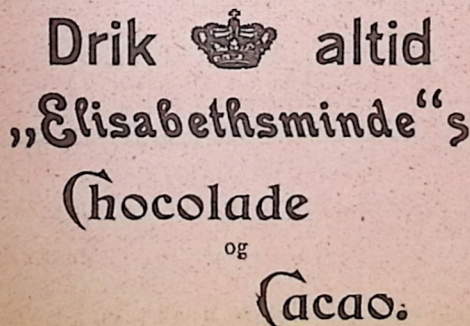 Drik altid
„Elisabethsminde“s
Chocolade
og
Cacao.